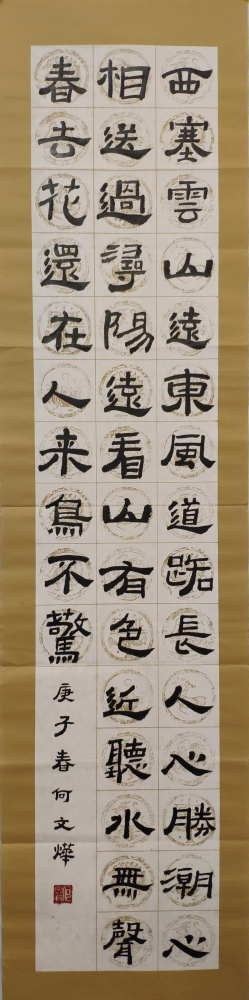 西塞雲山遠東風道路長人心勝潮心
相送過潯陽遠看山有色近聽水無聲
春去花還在人来鳥不驚
庚子春何文燁